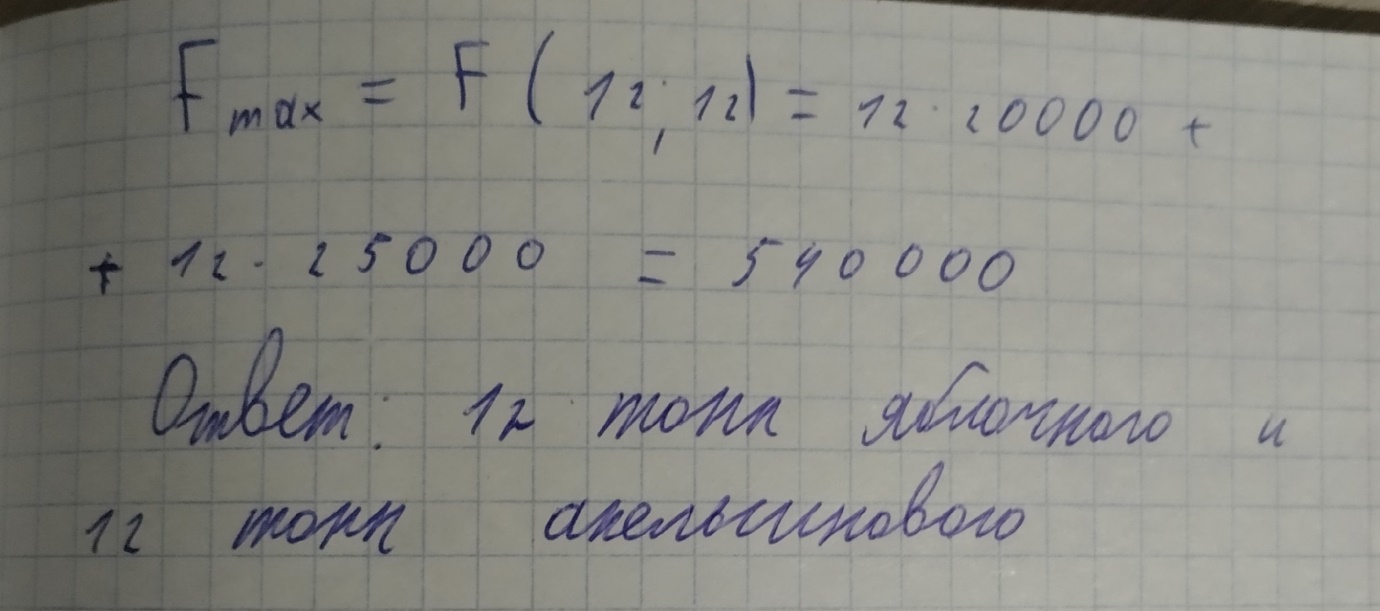 F max = F ( 12 ; 12 ) = 12 · 20000 +
+ 12 · 25000 = 540000
Ответ: 12 тонн яблочного и
12 тонн апельсинового